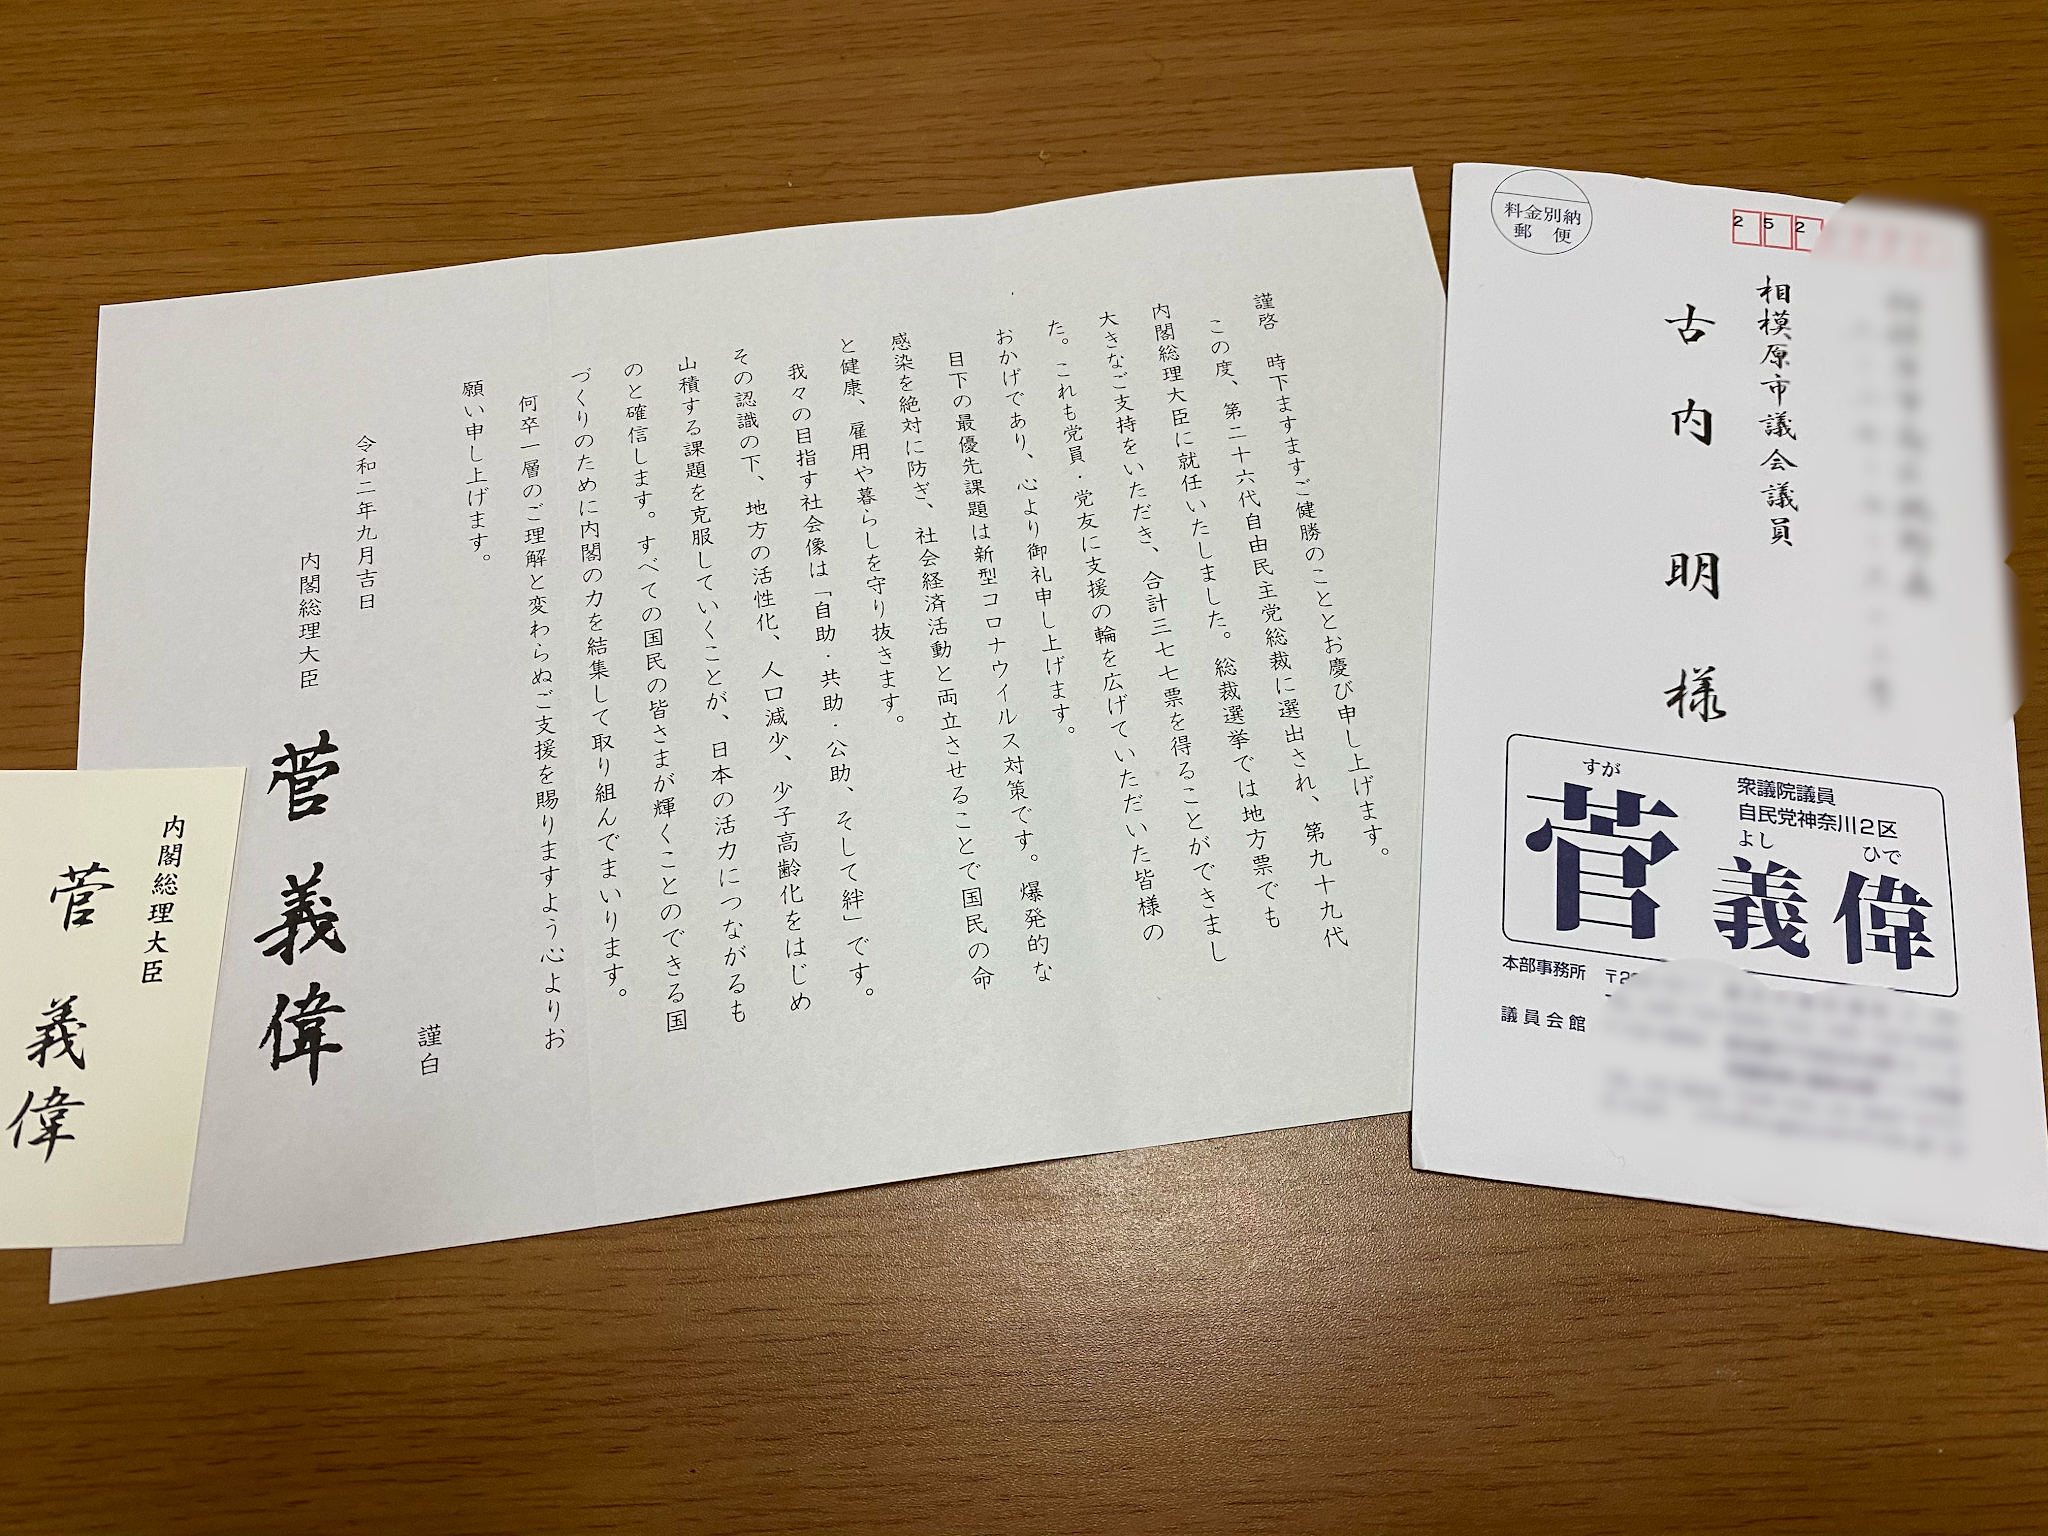 謹啓　時下ますますご健勝のこととお慶び申し上げます。
この度、第二十六代自由民主党総裁に選出され、第九十九代
内閣総理大臣に就任いたしました。総裁選挙では地方票でも
大きなご支持をいただき、合計三七七票を得ることができまし
た。これも党員・党友に支援の輪を広げていただいた皆様の
おかげであり、心より御礼申し上げます。
目下の最優先課題は新型コロナウイルス対策です。爆発的な
感染を絶対に防ぎ、社会経済活動と両立させることで国民の命
と健康、雇用や暮らしを守り抜きます。
我々の目指す社会像は「自助・共助・公助、そして絆」です。
その認識の下、地方の活性化、人口減少、少子高齢化をはじめ
山積する課題を克服していくことが、日本の活力につながるも
のと確信します。すべての国民の皆さまが輝くことのできる国
づくりのために内閣の力を結集して取り組んでまいります。
何卒一層のご理解と変わらぬご支援を賜りますよう心よりお
願い申し上げます。
謹白
令和二年九月吉日
内閣総理大臣
菅義偉
内閣総理大臣
菅義偉
料金別納
郵便
252
相模原市議会議員
古内明様
衆議院議員
自民党神奈川2区
すが よし ひで
菅義偉
本部事務所 〒2
議員会館